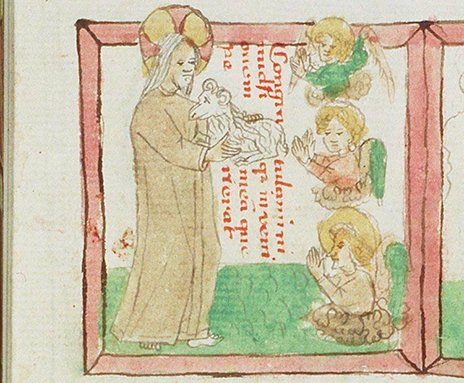 Congratulamini
michi qr inveni
ouem meā que
pe rierat